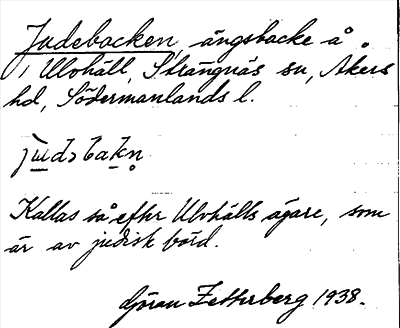 Judebacken, ängsbacke å
i Ulvhäll, Strängnäs sn, Åkers
hd, Södermanlands l.
Kallas så efter Ulvhälls ägare, som
är av judisk börd.
Göran Zetterberg 1938.